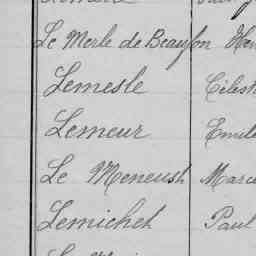 Le Merle de Beaufon Hen
Lemesle Célest
Lemeur Emile
Le Meneust Marce
Lemichet Paul